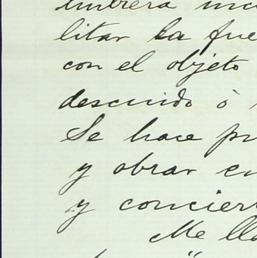 litar la fue
con el objeto
descuido ò
Se hace pr
y obrar en
y concier
Me lla